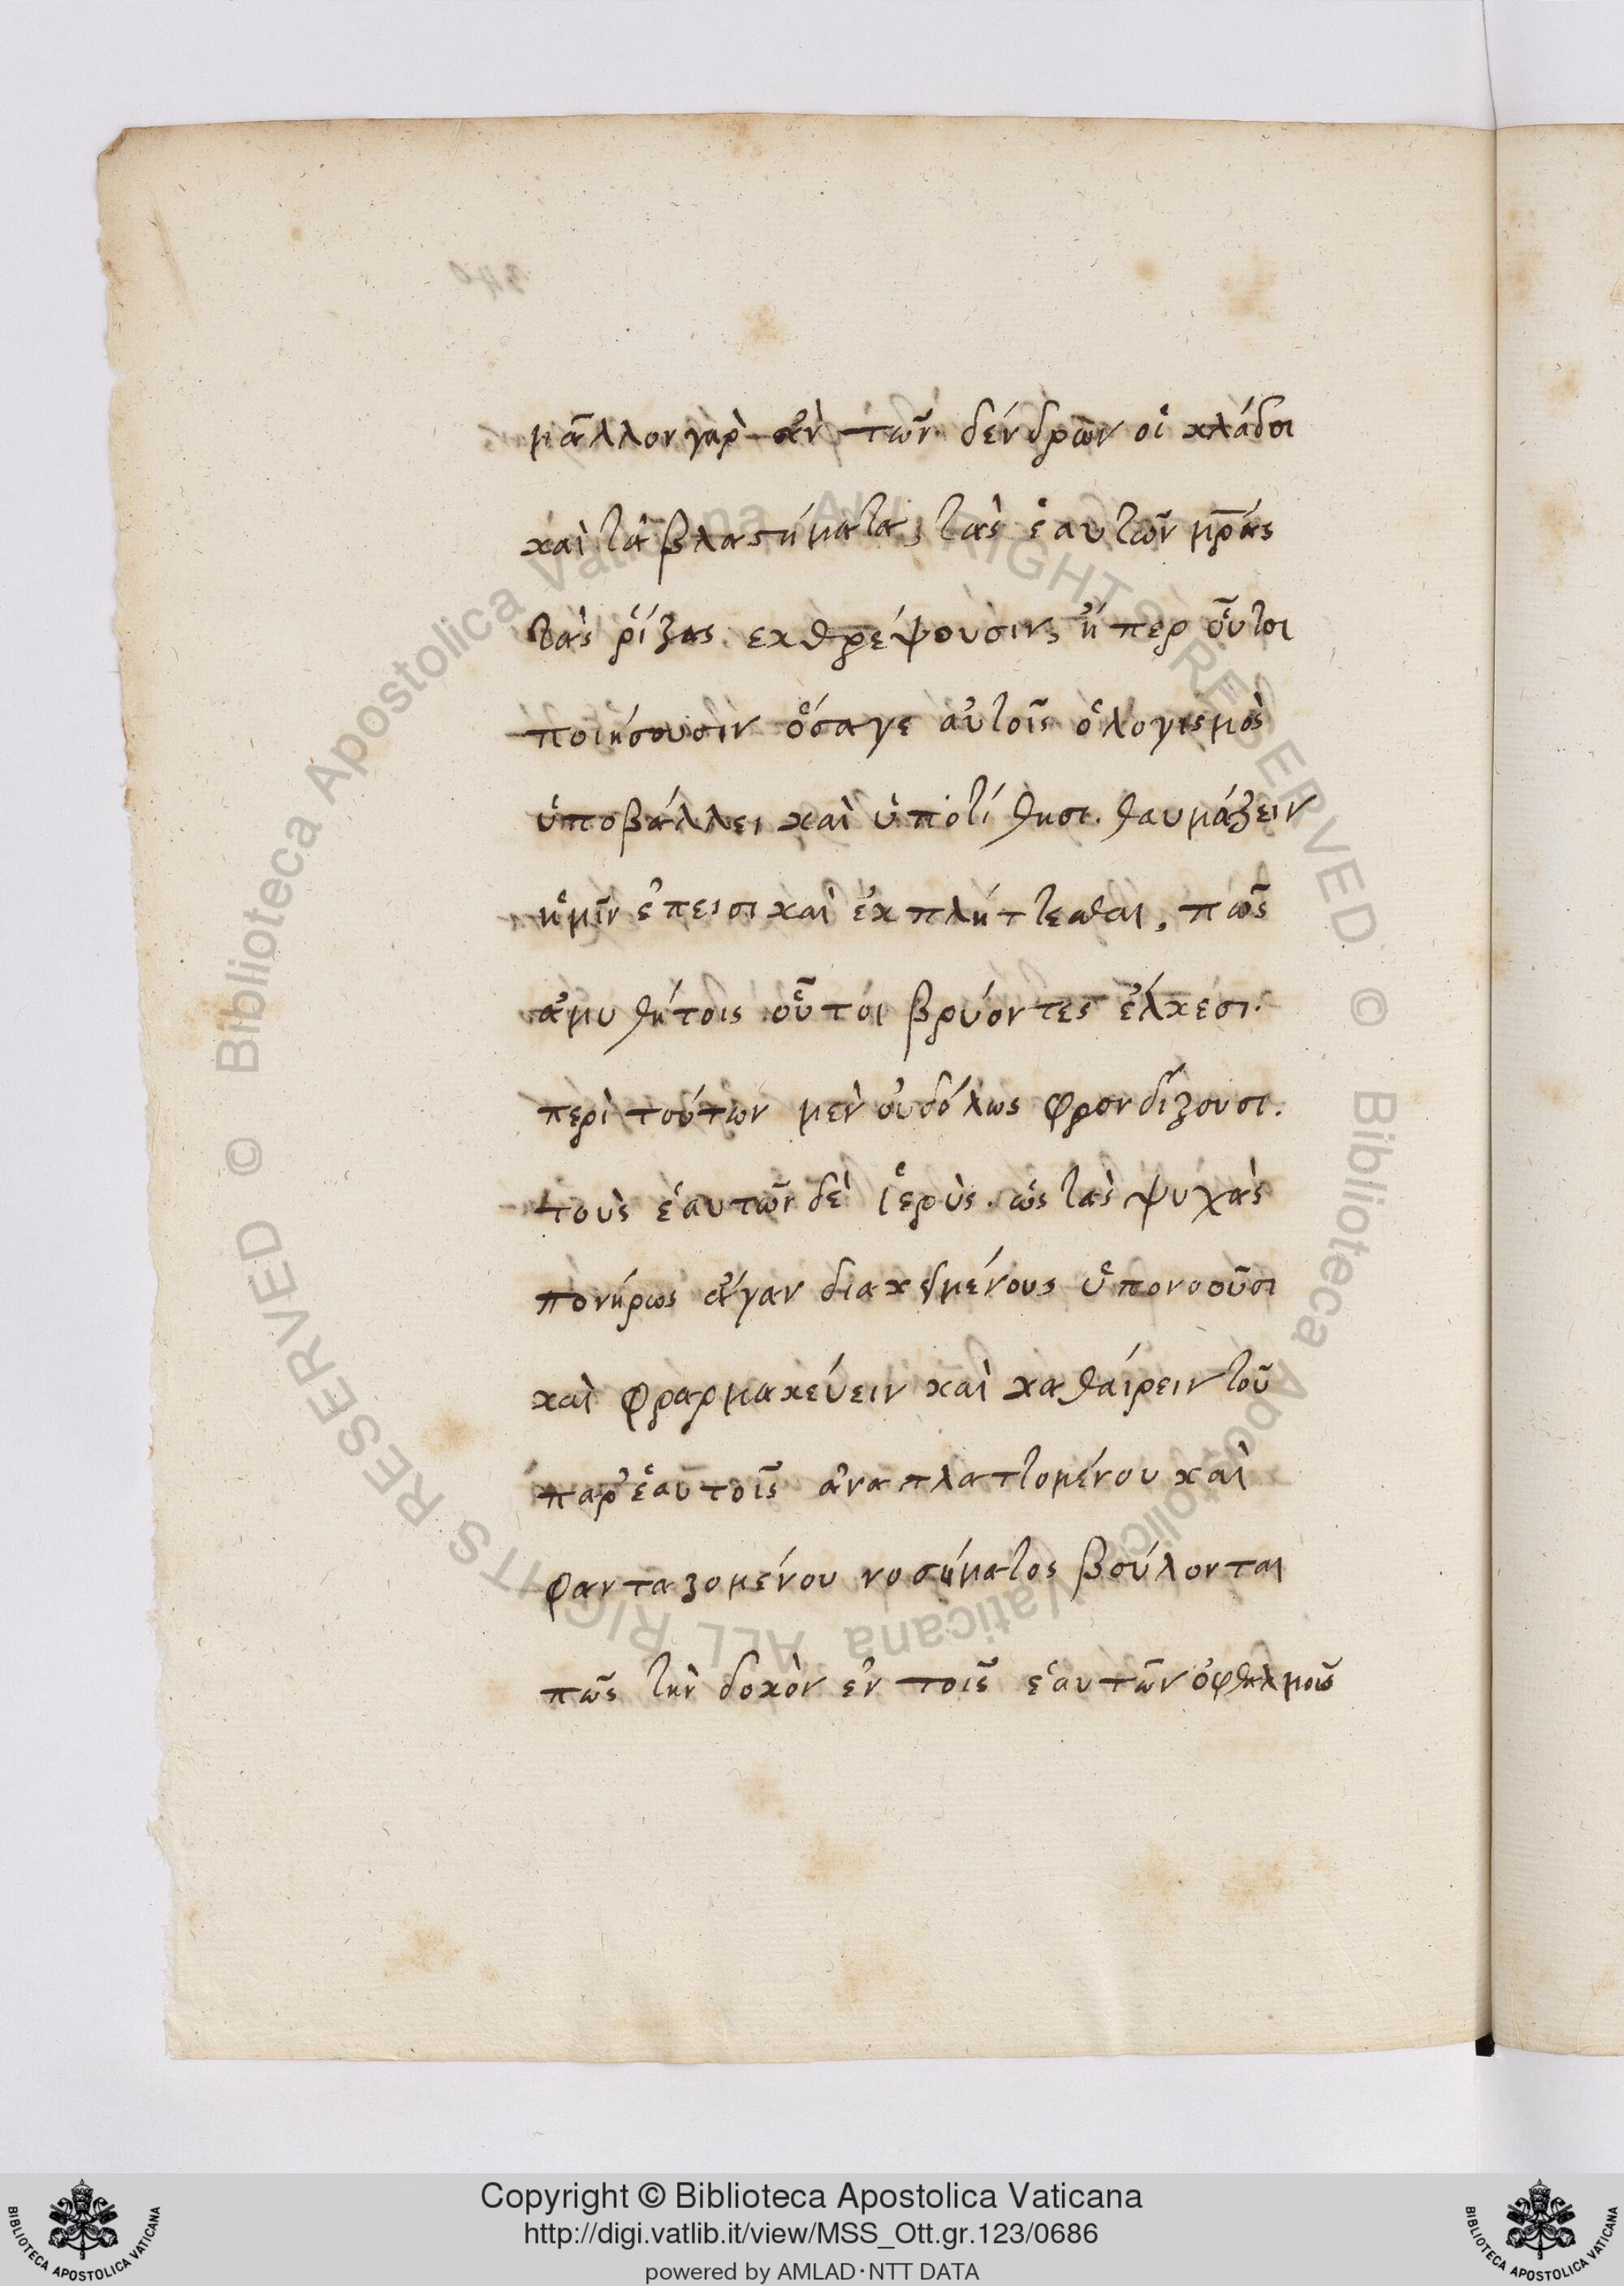 μᾶλλον γὰρ ἂν τῶν δένδρων οἱ κλάδοι
καὶ τὰ βλαστήματα, τὰς ἑαυτῶν μρ̅ας
τὰς ῥίζας ἐκθρέψουσιν, ἤπερ οὗτοι
ποιήσουσιν ὅσαγε αὐτοῖς ὁ λογισμὸς
ὑποβάλλει καὶ ὑποτίθησι. θαυμάζειν
ἡμῖν ἔπεισι καὶ ἐκπλήττεσθαι, πῶς
ἀμυθήτοις οὗτοι βρύοντες ἕλκεσι.
περὶ τούτων μὲν οὐδόλως φροντίζουσι.
τοὺς ἑαυτῶν δὲ ἱερεῖς. ὡς τὰς ψυχὰς
πονήρως ἄγαν διακειμένους ὑπονοοῦσι
καὶ φραρμακεύειν καὶ καθαίρειν τοῦ
παρ' ἑαυτοῖς ἀναπλαττομένου καὶ
φανταζομένου νοσήματος βούλονται
πῶς τὴν δοκὸν ἐν τοῖς ἑαυτῶν ὀφθαλμοῖς
© Biblioteca Apostolica Vaticana ALL RIGHTS RESERVED © Biblioteca Apostolica Vaticana ALL RIGHTS RESERVED
Copyright © Biblioteca Apostolica Vaticana
http://digi.vatlib.it/view/MSS_Ott.gr.123/0686
powered by AMLAD·NTT DATA
BIBLIOTECA APOSTOLICA VATICANA
BIBLIOTECA APOSTOLICA VATICANA